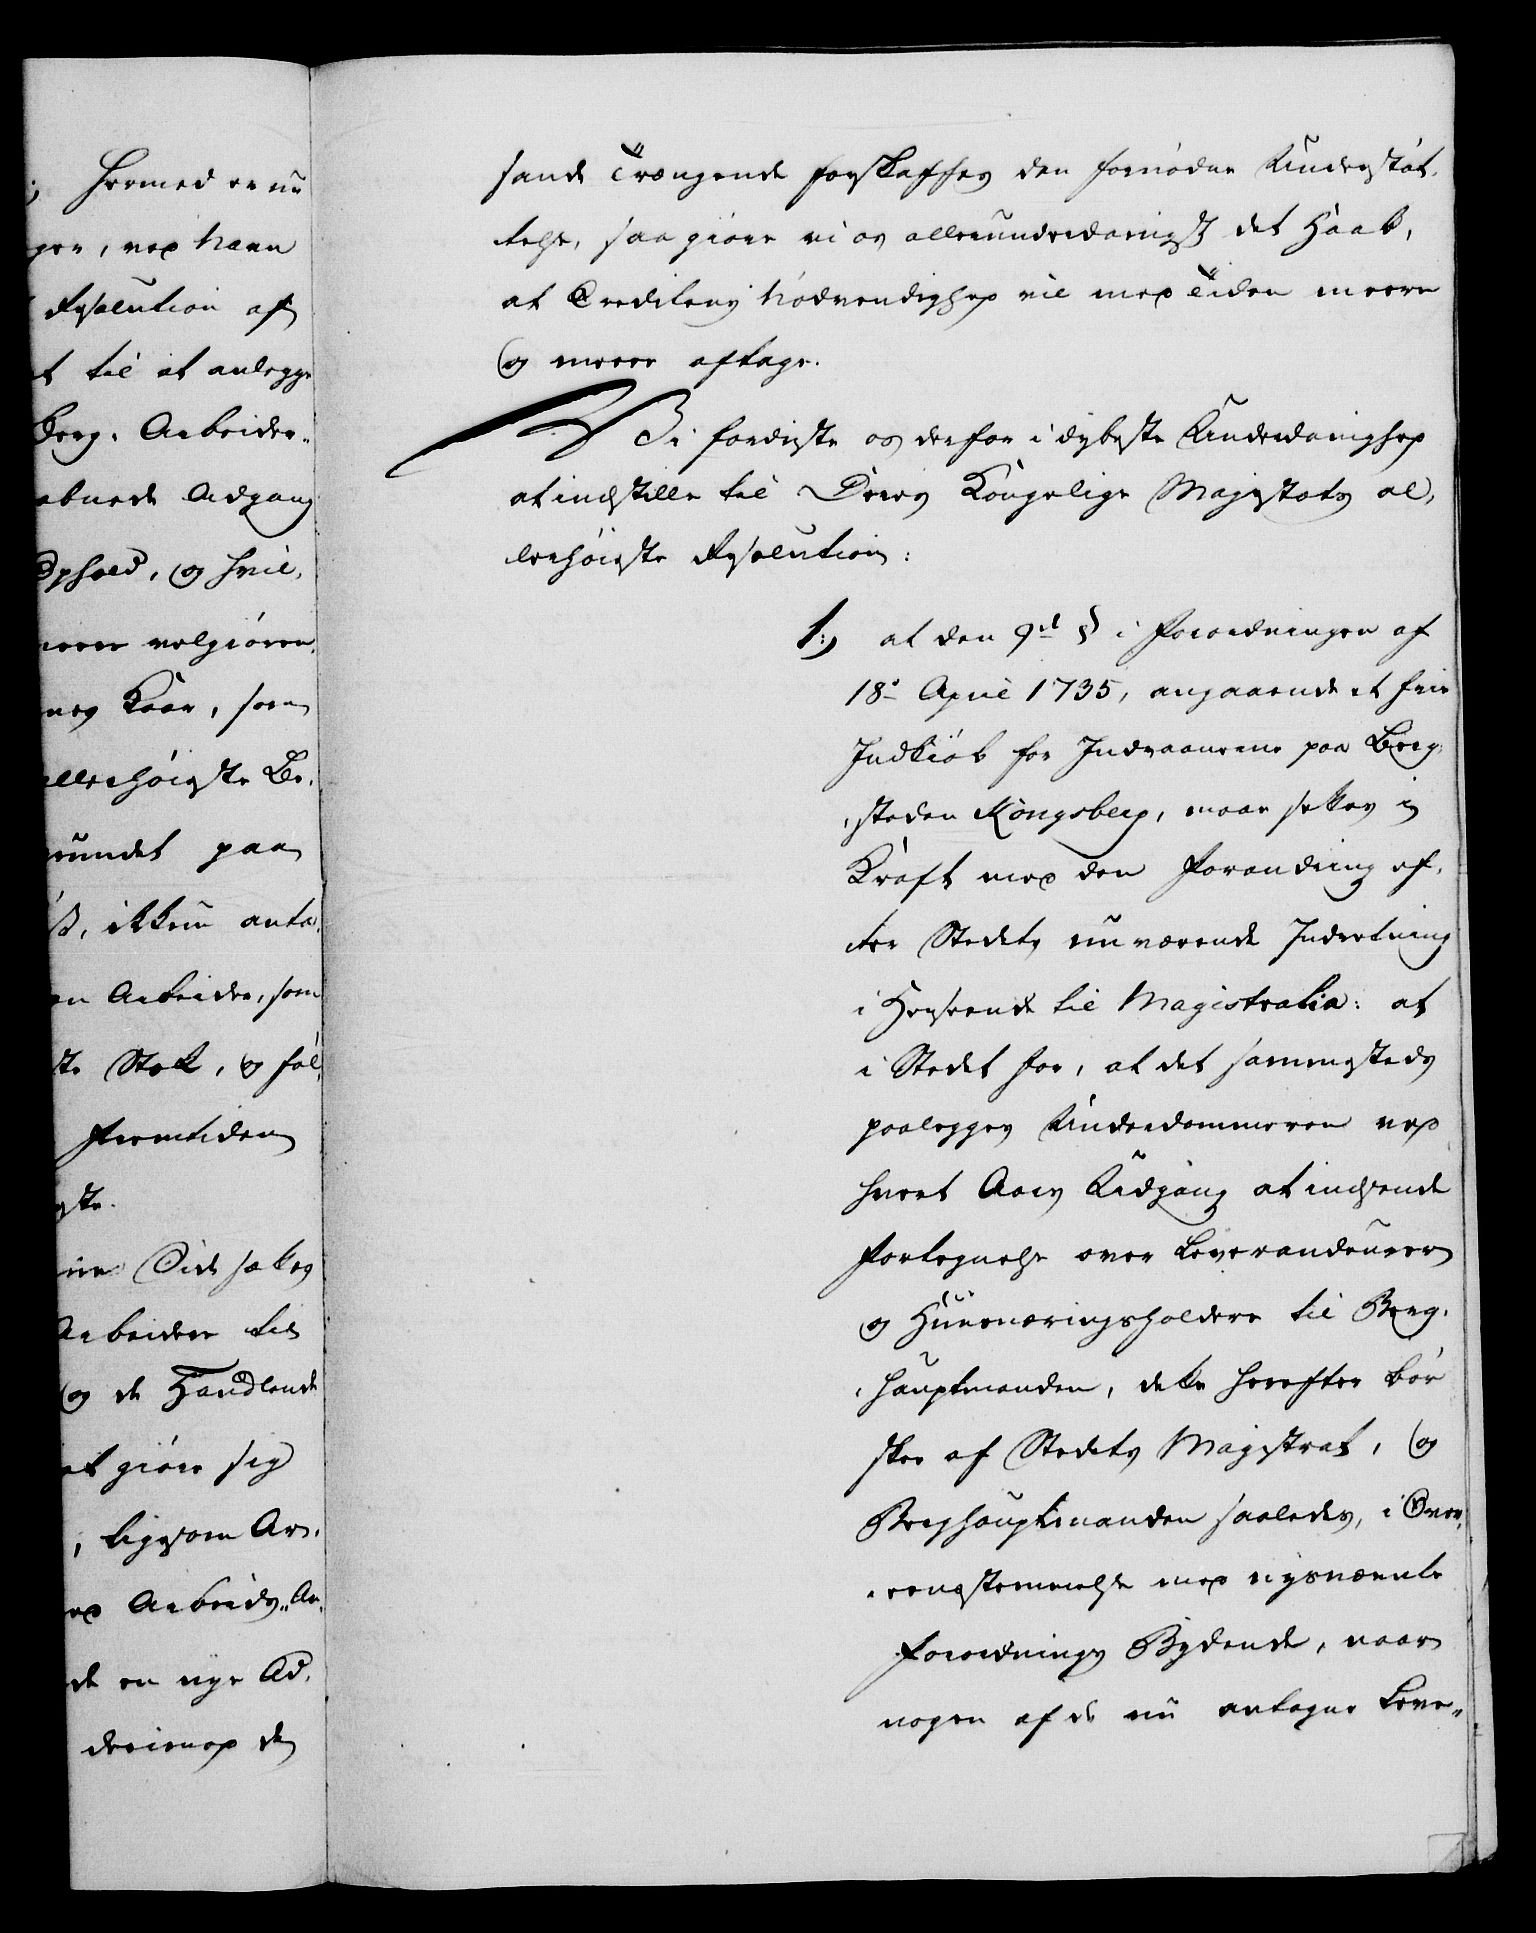 Hermed er nu
ger, ved Navn
Resolution af
t til at anlegge
Berg-Arbeider-
abnede Adgang
Ophold, og hvil-
meere velgiøren-
nes Kaar, som
allerhøieste Be-
rundet paa
ikkun anta-
en Arbeider, som
ste Stok, og føl-
Fremtiden
gste.
Side sættes
Arbeidere til
og de Handlende
at giøre sig
, ligesom Ar-
ed Arbeids-An-
de en nye Ad-
derimod de
sande Trængende forskaffes den fornødne Understøt-
telse, saa giøre vi os allerunderdanigst det Haab,
at Creditens Nødvendighed vil med Tiden meere
og meere aftage.
Vi fordriste os derfor i dybeste Underdanighed
at indstille til Deres Kongelige Majestæts al-
lerhøieste Resolution:
1.) at den 9de § i Forordningen af
18de April 1735, angaaende et frie
Indkiøb for Indvaanerne paa Berg-
staden Kongsberg, maae settes i
Kraft med den Forandring ef-
ter Stedets nuværende Indretning
i Henseende til Magistratia: at
i Stedet for, at det sammesteds
paalegges Underdommeren ved
hvert Aars Udgang at indsende
Fortegnelse over Leverandeurer
og Huusnæringsholdere til Berg-
hauptmanden, dette herefter bør
skee af Stedets Magistrat, og
Berghauptmanden saaledes, i Over-
eensstemmelse med nysnævnte
Forordnings Bydende, naar
nogen af de nu antagne Leve-